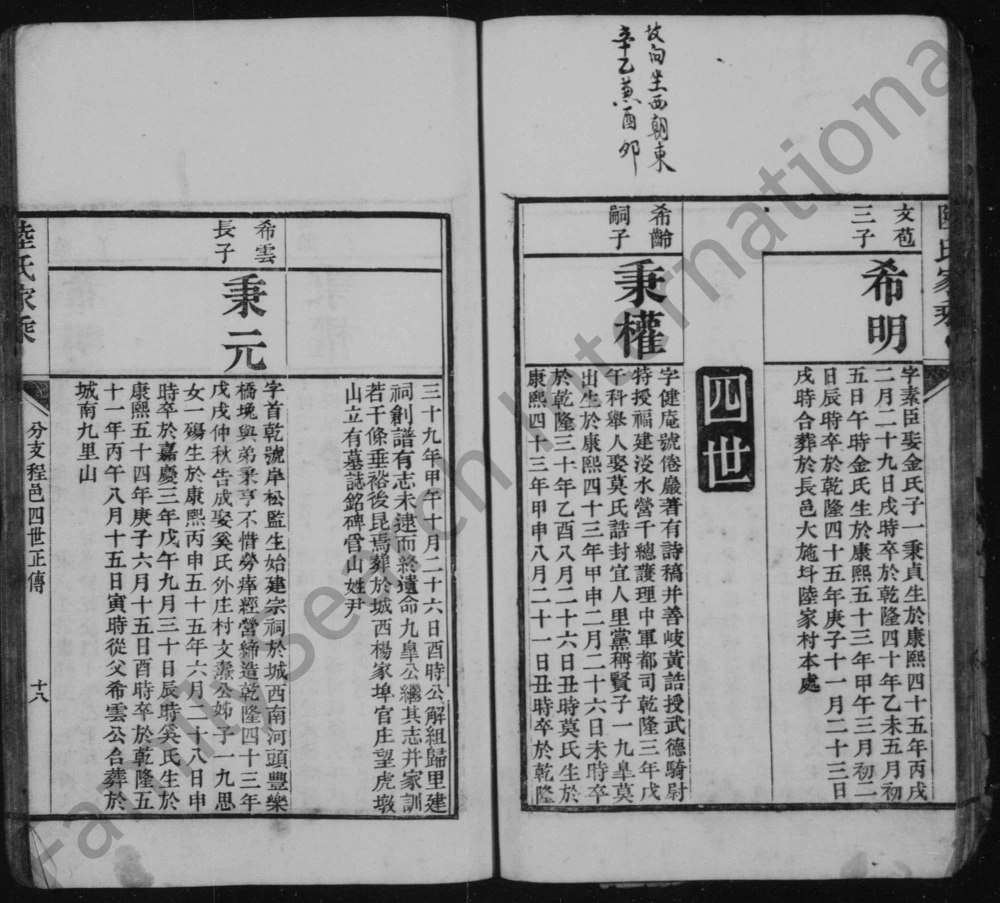 故向坐西朝東
辛乙兼酉卯
陸氏家乘
文苞
三子
希明
字素臣娶金氏子一秉貞生於康熙四十五年丙戌
二月二十九日戌時卒於乾隆四十年乙未五月初
五日午時金氏生於康熙五十三年甲午三月初二
日辰時卒於乾隆四十五年庚子十一月二十三日
戌時合葬於長邑大施圲陸家村本處
四世
希齡
嗣子
秉權
字健庵號倦巖著有詩稿并善岐黃誥授武德騎尉
特授福建淡水營千總護理中軍都司乾隆三年戊
午科舉人娶莫氏誥封宜人里黨稱賢子一九皐莫
出生於康熙四十三年甲申二月二十六日未時卒
於乾隆三十年乙酉八月二十六日丑時莫氏生於
康熙四十三年甲申八月二十一日丑時卒於乾隆
三十九年甲午十月二十六日酉時公解組歸里建
祠創譜有志未逮而終遺命九皐公繼其志并家訓
若干條垂裕後昆焉葬於城西楊家埠官庄望虎墩
山立有墓誌銘碑管山姓尹
希雲
長子
秉元
字首乾號岸松監生始建宗祠於城西南河頭豐樂
橋堍與弟秉亨不惜勞瘁經營締造乾隆四十三年
戊戌仲秋告成娶奚氏外庄村文燾公姊子一九思
女一殤生於康熙丙申五十五年六月二十八日申
時卒於嘉慶三年戊午九月三十日辰時奚氏生於
康熙五十四年庚子六月十五日酉時卒於乾隆五
十一年丙午八月十五日寅時從父希雲公合葬於
城南九里山
陸氏家乘
分支程邑四世正傳
十八
FamilySearch International